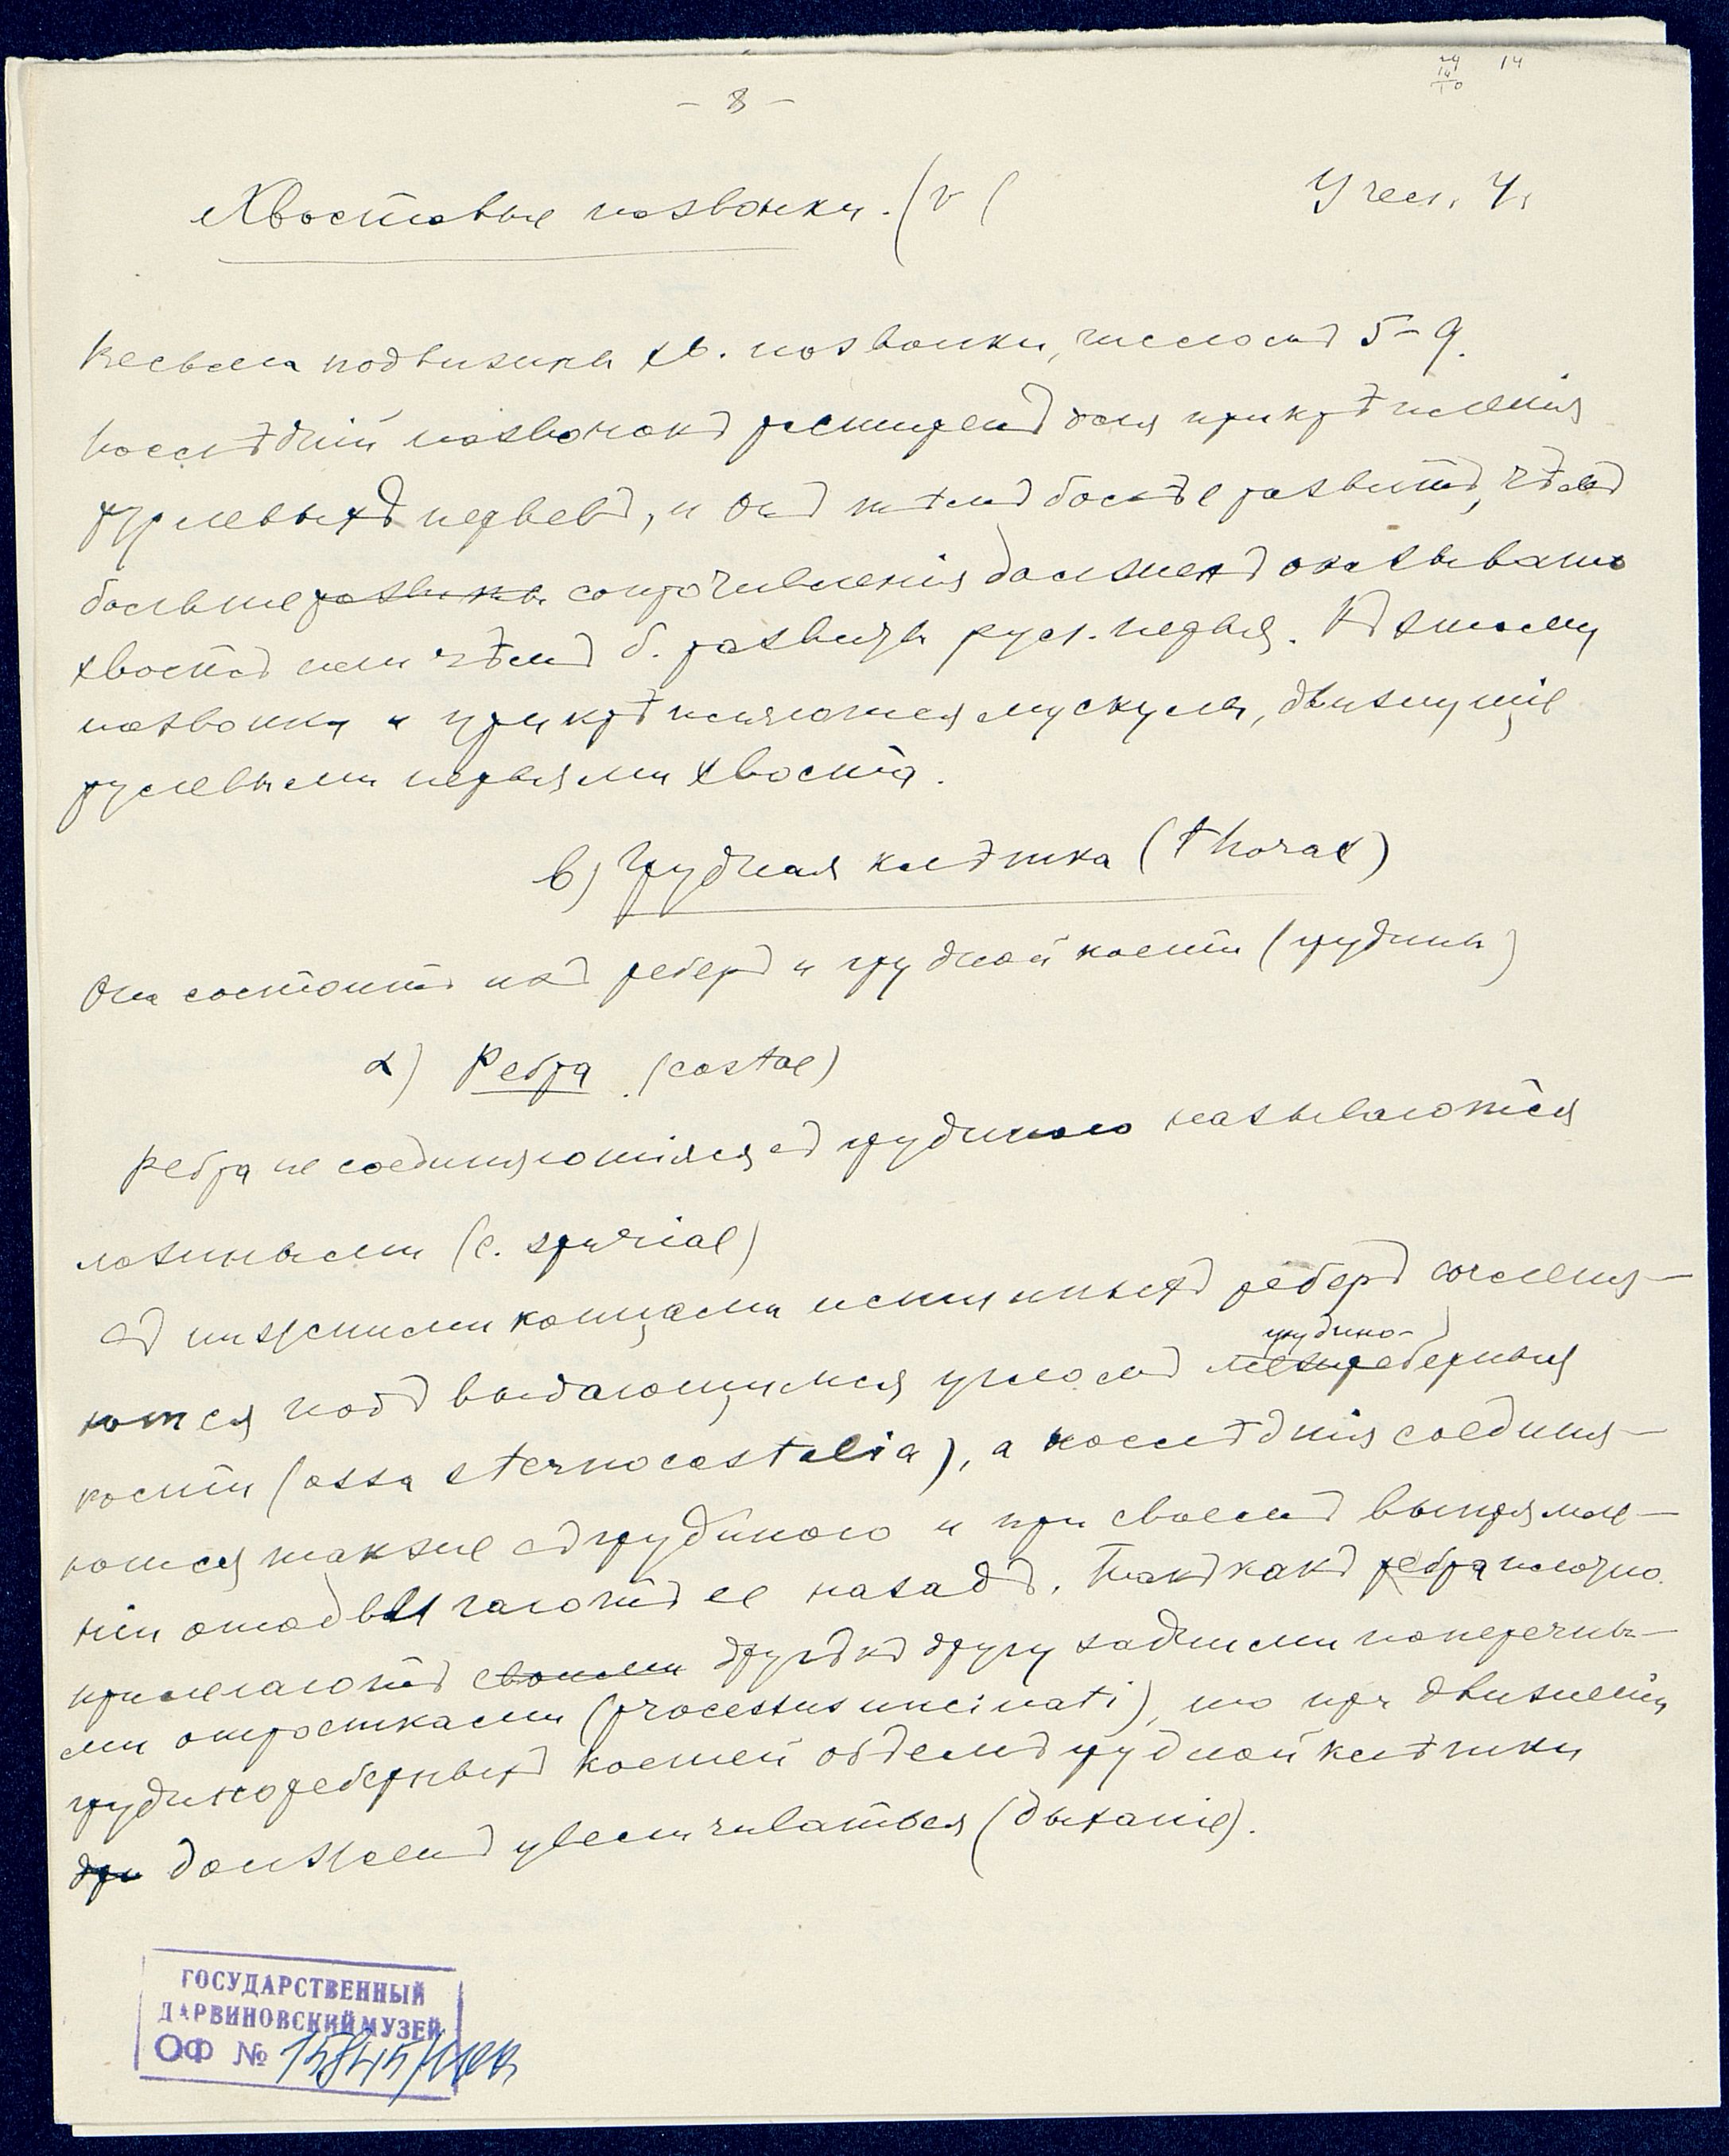 14
- 8 -
Хвостовые позвонки. (
Весьма подвижны хв. позвонки, числомъ 5-9.
Послѣдній позвонокъ расширенъ для прикрѣпленія
рулевыхъ перьевъ, и онъ тѣмъ болѣе развитъ, чѣмъ
больше развиты сопротивленія долженъ оказывать
хвостъ или чѣмъ б. развиты рул. перья. Къ этому
позвонку и прикрѣпляются мускулы, движущіе
рулевыми перьями хвоста.
в) Грудная клѣтка (thorax)
Она состоитъ изъ реберъ и грудной кости (грудины)
α) Ребра (costae)
Ребра не соединяющіяся съ грудиною называются
ложными (c. spuriae)
Съ нижними концами истинныхъ реберъ сочленя-
ются подъ выдающимся угломъ грудино-
реберныя
кости (ossa sternocostalia), а послѣднія соединя-
ются также съ грудиною и при своемъ выпрямле-
ніи отодвигаютъ ее назадъ. Такъ какъ ребра плотно
прилегаютъ своими другъ къ другу задними поперечны-
ми отростками (processus uncinati), то при движеніи
грудинореберныхъ костей объемъ грудной клѣтки
долженъ увеличиваться (дыханіе).
ГОСУДАРСТВЕННЫЙ
ДАРВИНОВСКИЙ МУЗЕЙ
ОФ № 15845/